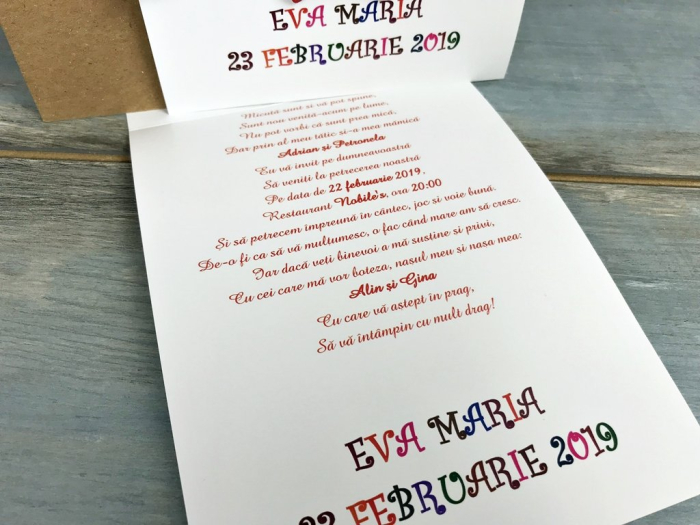 EVA MARIA
23 FEBRUARIE 2019
Micuță sunt și vă pot spune,
Sunt nou venită-acum pe lume,
Nu pot vorbi că sunt prea mică,
Dar prin al meu tătic și-a mea mămică
Adrian și Petronela
Eu vă invit pe dumneavoastră
Să veniti la petrecerea noastră
Pe data de 22 februarie 2019,
Restaurant Nobile's, ora 20:00
Și să petrecem împreună în cântec, joc si voie bună.
De-o fi ca să vă multumesc, o fac când mare am să cresc.
Iar dacă veti binevoi a mă sustine si privi,
Cu cei care mă vor boteza, nasul meu si nasa mea:
Alin și Gina
Cu care vă astept în prag,
Să vă întâmpin cu mult drag!
EVA MARIA
22 FEBRUARIE 2019